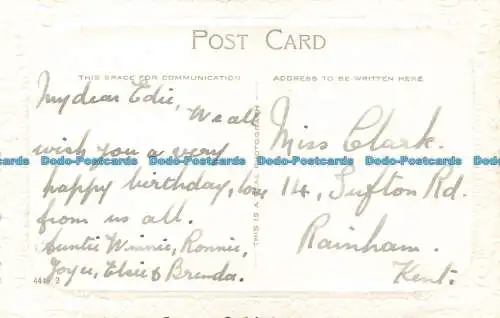 POST CARD
THIS SPACE FOR COMMUNICATION
ADDRESS TO BE WRITTEN HERE
My dear Edie,
We all
wish you a very
happy birthday, love
from us all.
Auntie Winnie, Ronnie,
Joyce, Elsie & Brenda.
THIS IS A REAL PHOTOGRAPH
Miss Clark.
14, Sufton Rd.
Rainham.
Kent.
Dodo-Postcards Dodo-Postcards Dodo-Postcards Dodo-Postcards